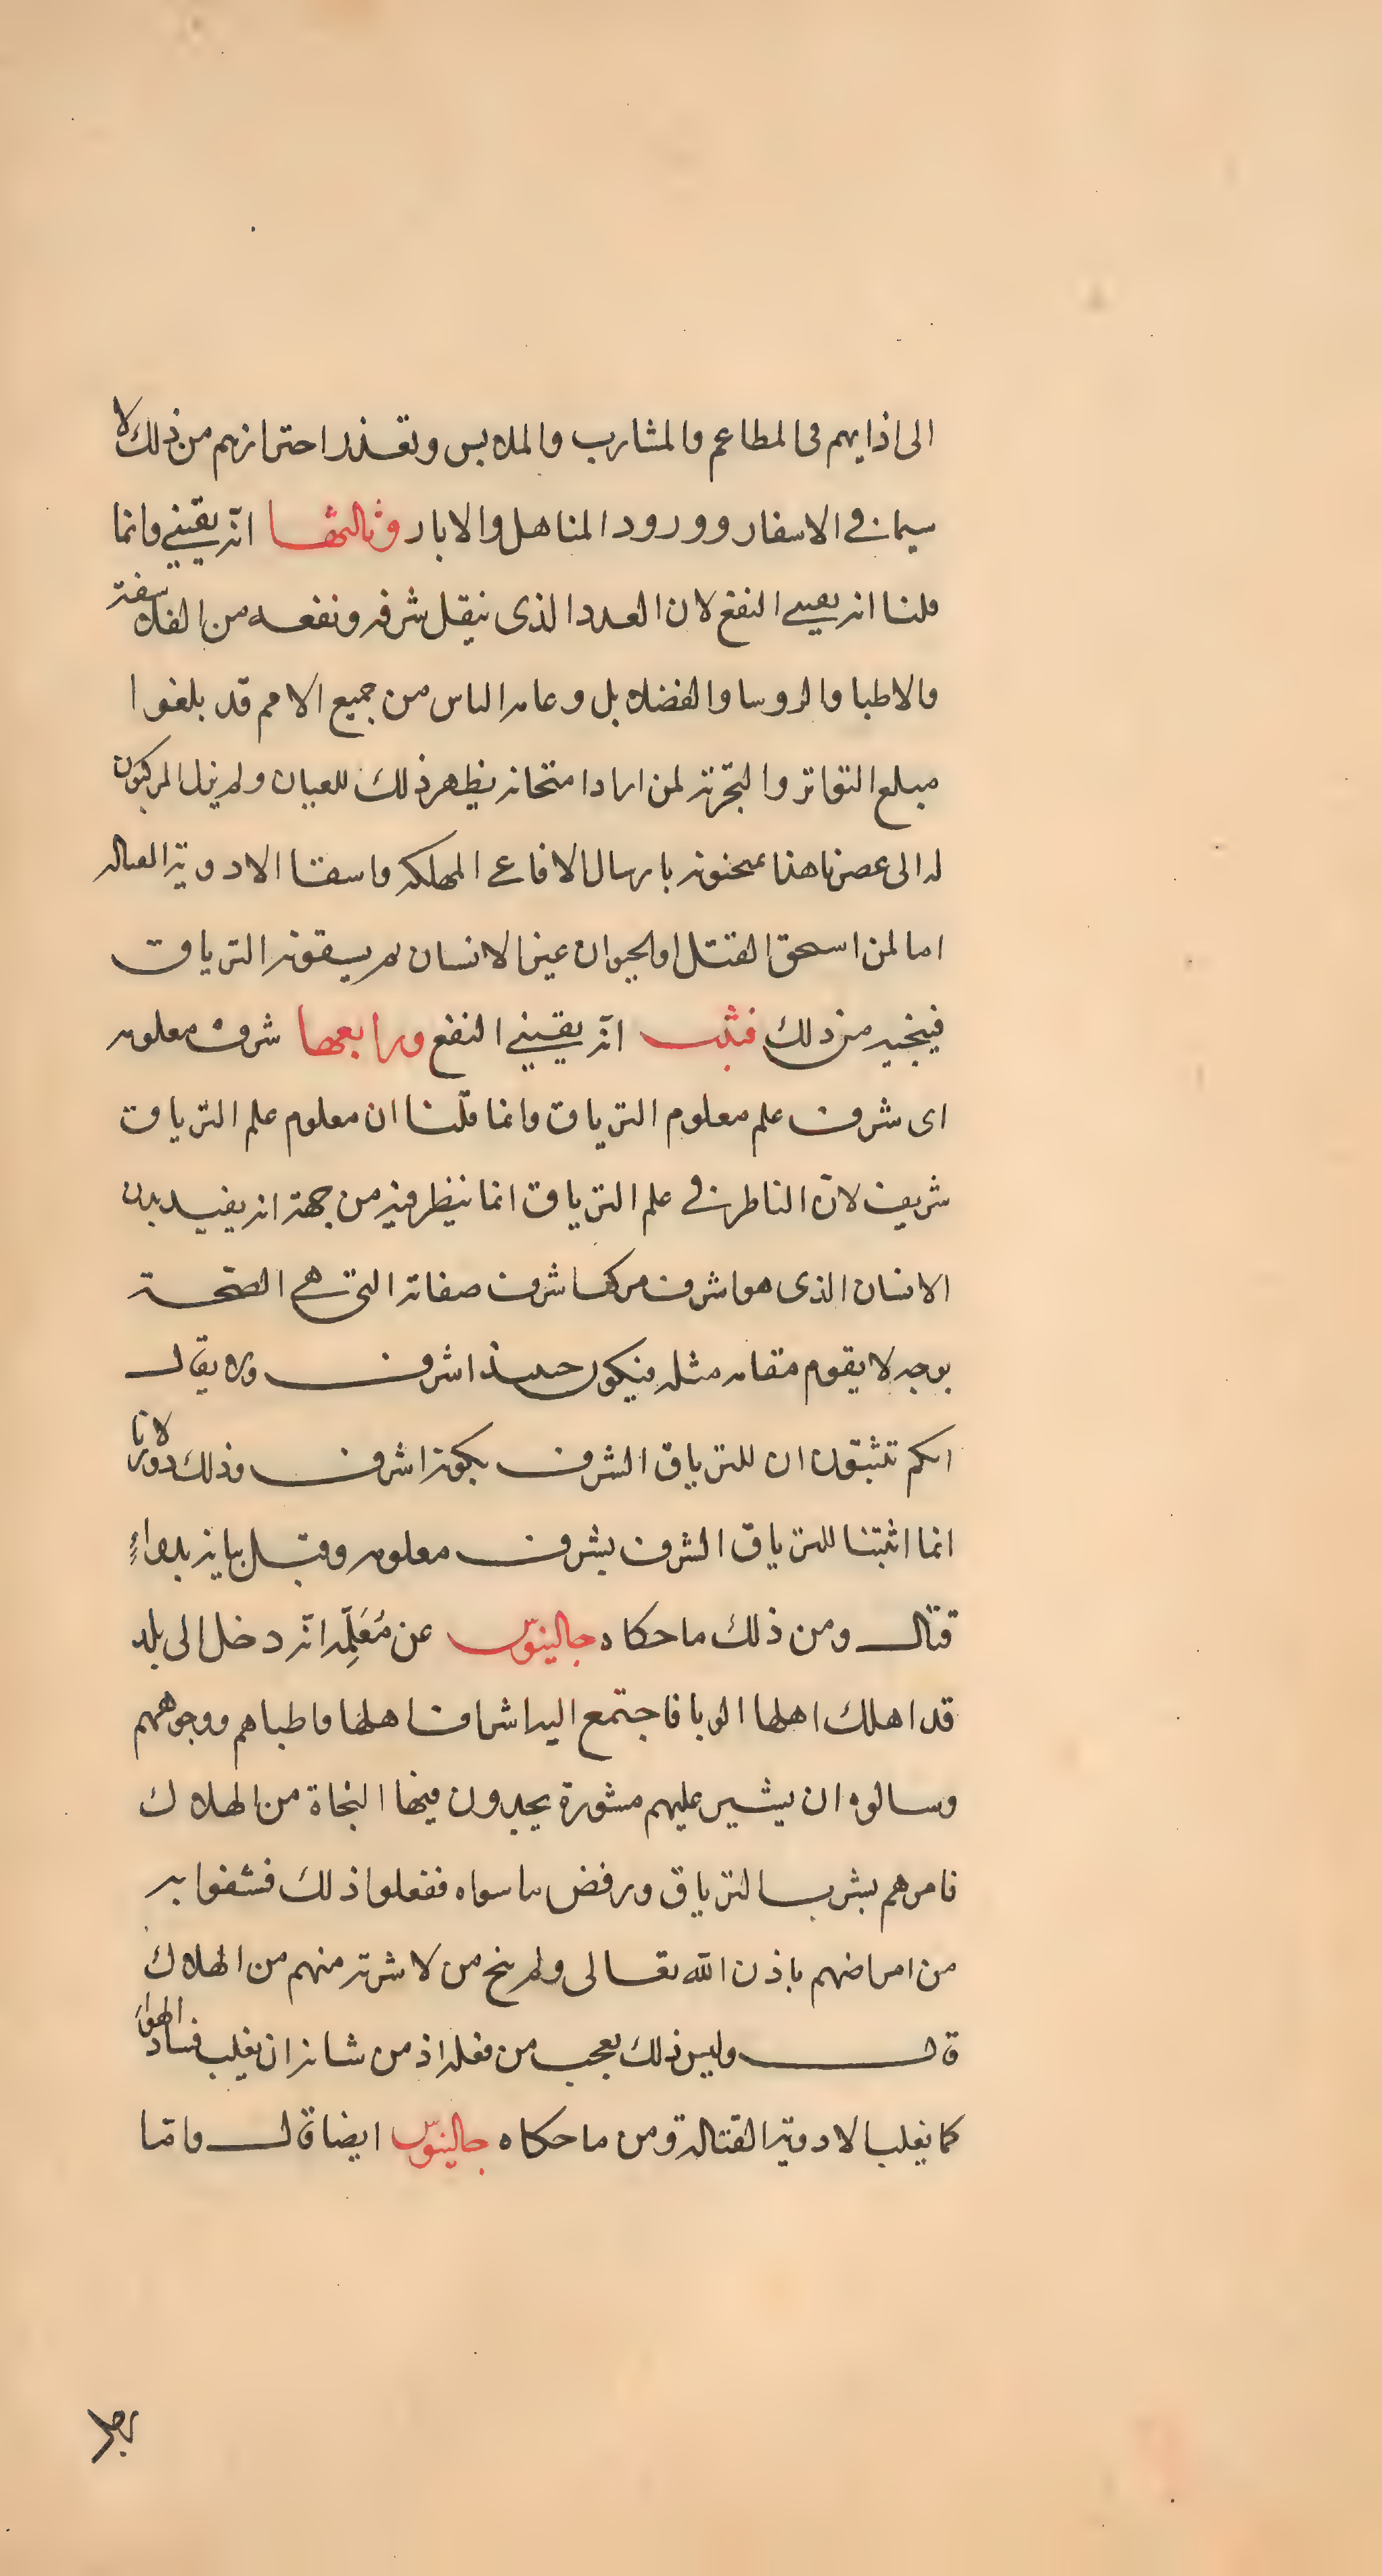 الى اذايهم فى المطاعم والمشارب والملابس وتعذر احترازهم من ذلك لا
سيما فى الاسفار وورود المناهل والابار وثالثها انه يقينى وانما
قلنا انه يقينى النفع لان العدد الذى ينقل شرفه ونفعه من الفلاسفة
والاطبا والروسا والفضلا بل وعامه الناس من جميع الامم قد بلغوا
مبلع التواتر والتجربة لمن اراد امتحانه يظهر ذلك للعيان ولم يزل المركبون
له الى عصرنا هذا يمتحنونه بارسال الافاعى المهلكه واسقا الادوية القتاله
اما لمن استحق القتل او لحيوان غير الانسان ثم يسقونه الترياق
فينجيه من ذلك فثبت انه يقينى النفع ورابعها شرف معلومه
اى شرف علم معلوم الترياق وانما قلنا ان معلوم علم الترياق
شريف لان الناظر فى علم الترياق انما ينظر فيه من جهة انه يفيد بدن
الانسان الذى هو اشرف مركب اشرف صفاته التى هى الصحة
بوجه لا يقوم مقامه مثله فيكون حينئذ اشرف ولا يقال
انكم تثبتون ان للترياق الشرف بكونه اشرف وذلك دور لانا
انما اثبتنا للترياق الشرف بشرف معلومه وقبل بيانه بدواء
قتال ومن ذلك ما حكاه جالينوس عن مُعَلِّمه انه دخل الى بلد
قد اهلك اهلها الوبا فاجتمع اليه اشراف اهلها واطباهم ووجوههم
وسالوه ان يشير عليهم مشورة يجدون فيها النجاة من الهلاك
فامرهم بشرب الترياق ورفض ما سواه ففعلوا ذلك فشفوا به
من امراضهم باذن الله تعالى ولم ينج من لا شربه منهم من الهلاك
قال وليس ذلك بعجب من فعله اذ من شانه ان يغلب فساد الهواء
كما يغلب الادوية القتالة ومن ما حكاه جالينوس ايضا قال واما